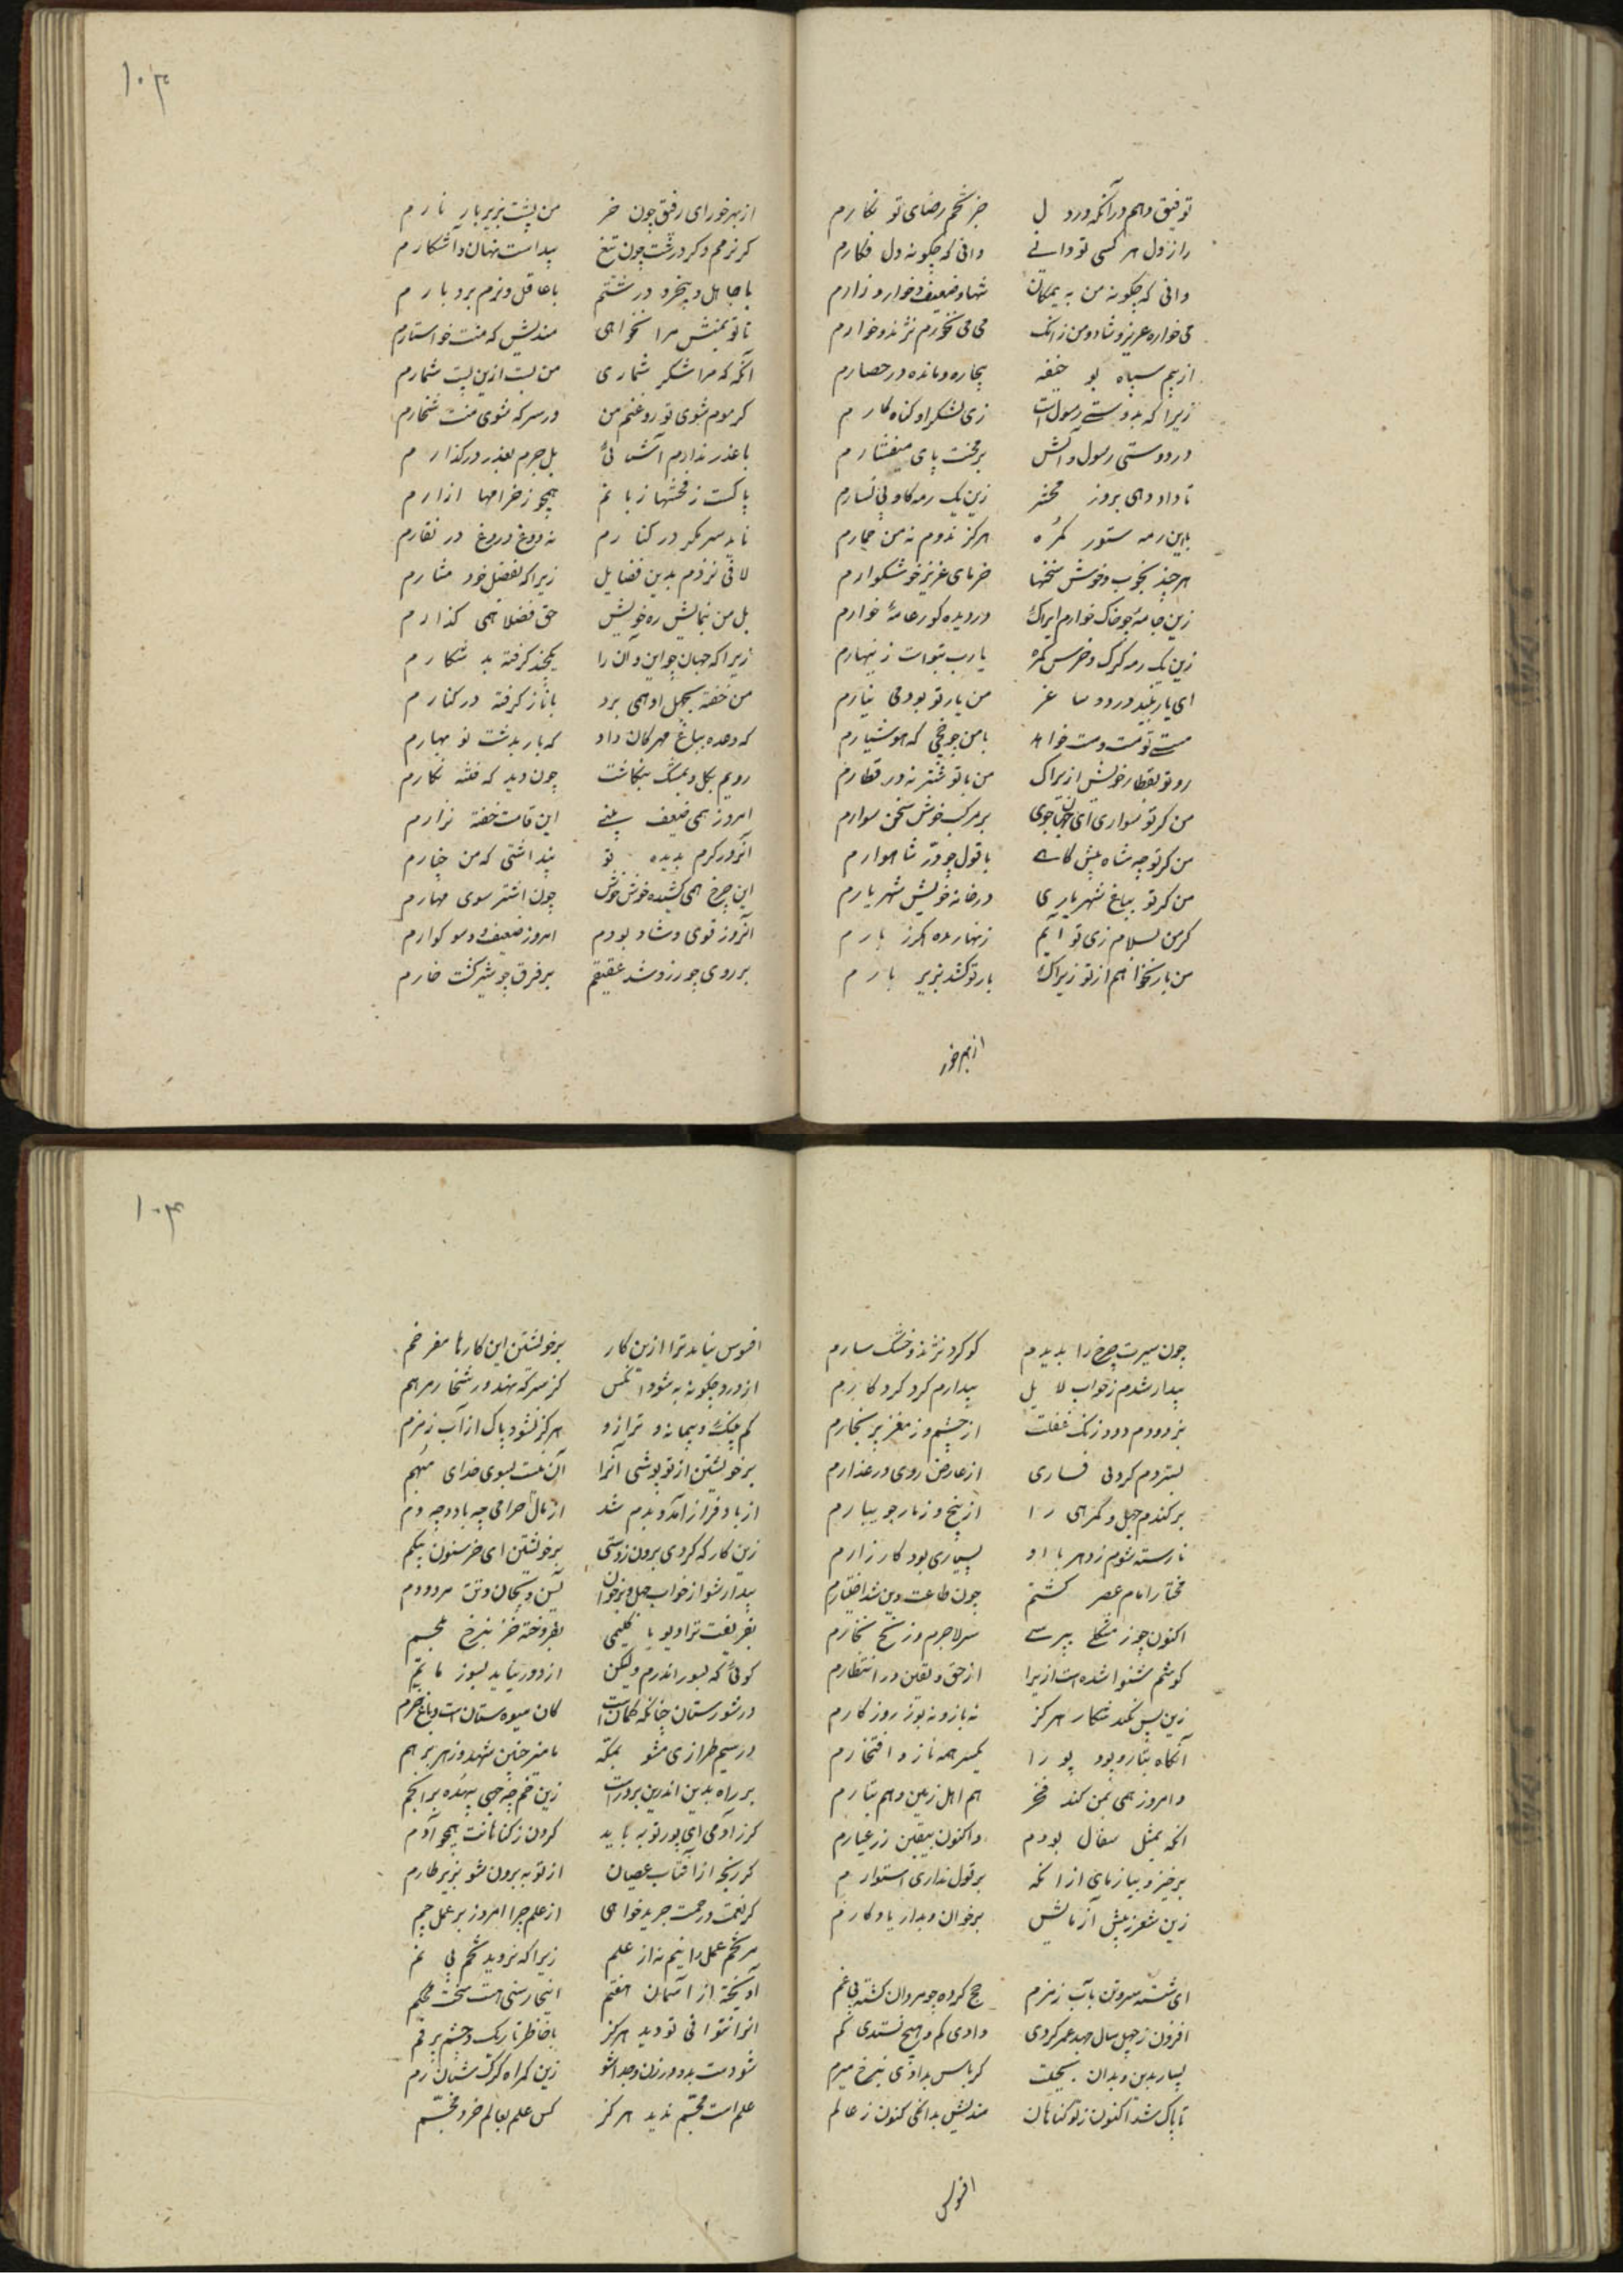 توفیق دهم در آنکه در دل جز تخم رضای تو نکارم
راز دل هر کسی تو دانی دانی که چگونه دل فکارم
دانی که چگونه من به یمکان تنها و ضعیف و خوار و زارم
می خواره عزیز و شاد و من زانک می می نخورم نژند و خوارم
از بیم سپاه بو حنیفه بیچاره و مانده در حصارم
زیرا که به دوستی رسول است زی لشکر او گناه کارم
در دوستی رسول و آلش بر محنت پای میفشارم
تا داد دهی بروز محشر زین یک رمه کاو بی فسارم
با این رمه ستور گمره هرگز نروم نه من حمارم
هر چند بخوب و خوش سخنها خرمای عزیز خوشگوارم
زین عامه چو خاک خوارم ایراک در دیده کور عامه خوارم
زین یک رمه گرک و خرس گمره یا رب بتو است زینهارم
ای یار نبید و رود و ساغر من یار تو بود می نیارم
مستی تو مست مست خواهد با من چه چخی که هوشیارم
رو تو بقطار خویش ازیراک من با تو شتر نه در قطارم
من گر تو سواری ای جهانجوی بر مرکب خوش سخن سوارم
من گر تو چه شاه پیش گاهی با قول چو در شاهوارم
من گر تو بباغ شهریاری در خانه خویش شهریارم
گر من بسلام زی تو آیم زنهار مده هگرز بارم
من بار نخواهم از تو زیراک بار تو کشد بزیر بارم
از بهر خور
۱۰۳
از بهر خور ای رفیق چون خر من پشت بزیر بار نارم
گر نرمم و گر درشت چون تیغ پیداست نهان و آشکارم
با جاهل و بیخرد درشتم با عاقل و نرم بردبارم
تا تو بمنش مرا نخواهی مندیش که منت خواستارم
آنگه که مرا شکر شماری من پست ازین پست شمارم
گر موم شوی تو روغنم من ور سرکه شوی منت شخارم
با غدر ندارم آشنائی بل جرم بعذر درگذارم
پاکست ز فحشها زبانم همچو ز حرامها ازارم
ناید سر مکر در کنارم نه دوغ دروغ در تغارم
لافی نزدم بدین فضایل زیرا که بفضل خود مشارم
بل من بنمایش ره خویش حق فضلا همی گذارم
زیرا که جهان چو این و آن را یکچند گرفته بد شکارم
من خفته بجهل او همی برد با ناز گرفته در کنارم
که وعده بباغ مهرگان داد که بار بدشت نو بهارم
رویم بگل و بمشک بنگاشت چون دید که فتنه نگارم
امروز همی ضعیف بینی این قامت خفته نزارم
آنروز گرم بدیده تو پنداشتی که من چنارم
این چرخ همی کشید خوش خوش چون اشتر سوی مهارم
آنروز قوی و شاد بودم امروز ضعیف و سوکوارم
بر روی چو زرد شد عقیقم بر فرق چو شیر گشت قارم
چون سیرت چرخ را بدیدم کو کرد نژند و خشک سارم
بیدار شدم ز خواب لابل بیدارم کرد کردگارم
بزدودم دود زنگ غفلت از چشم و ز مغز پر بخارم
بستردم گردنی فساری از عارض و روی و ز عذارم
برکندم جهل و گمرهی را از بیخ و ز نار جویبارم
تا رسته شوم ز دهر با او بسیاری بود کارزارم
مختار امام عصر گشتم چون طاعت و دین شد اختیارم
اکنون چو ز مشکلی بپرسی سر لاجرم و زنخ نخارم
گوشم شنوا شده است ازیرا از حق و یقین در انتظارم
زین پس نکند شکار هرگز نه باز و نه یوز روزگارم
آنگاه تبار و بود پورا یکسر همه ناز و افتخارم
و امروز همی بمن کند فخر هم اهل زمین و هم تبارم
آنگه بمثل سفال بودم و اکنون بیقین زر عیارم
برخیز و بیازمای از آنکه بر قول نداری استوارم
زین شعر ز پیش آزمایش برخوان و بدار یادگارم
ای شسته سر و تن بآب زمزم حج کرده چو مردان گشته بی غم
افزون ز چهل سال جهد کردی دادی کم و هیچ نستدی کم
بسیار بدین و بدان بحیلت کرباس بدادی بنرخ میرم
تا پاک شد اکنون ز تو گناهان مندیش بدانکی کنون ز عالم
افوس
۱۰۴
افسوس نیاید ترا ازین کار بر خویشتن این کارها مفرخم
از درد چگونه به شود آنکس کز سرکه نهد و ز شخار مرهم
کم چنگ و پیمانه و ترازو هرگز نشود پاک از آب زمزم
بر خویشتن از تو پوشی آنرا آن نیست بسوی خدای مبهم
از باد فراز آمد و بدم شد از مال حرامی چه باد و چه دم
زین کار که کردی برون زدستی بر خویشتن ای خر سنون بیکم
بیدار شو از خواب جهل و برخوان یسن و بجان و تنت بر دم
بفریفت ترا دیو تا گلیمی بفروخته خز بنرخ ملحم
گوئی که بسور اندرم ولیکن از دور نیاید بسور ماتم
در شورستان چنانکه گمانست کان میوه ستان است و باغ خرم
در سیم طرازی مشو بمکه نامیز چنین شهد و زهر بر هم
بر راه بدین اندرین برو راست زین خم چه جهی بیهده بر آن خم
گر ز آدمی ای پور توبه باید کردن ز گناهانت همچو آدم
گر رنجه از آفتاب عصیان از توبه برون شو بزیر طارم
گر نعمت و رحمت جزید خواهی از علم چرا امروز بر عمل چم
مر تخم عمل را بنم نه از علم زیرا که نروید تخم بی نم
آویخته از آسمان هفتم اینجا رسنی هست سخت محکم
آنرا نتوانی تو دید هرگز با خاطر تاریک و چشم پر نم
شو دست بدو در زن و جدا شو زین گمراه گرگ شبان رم
علم است مجسم ندید هرگز کس علم بعالم خود مجسم